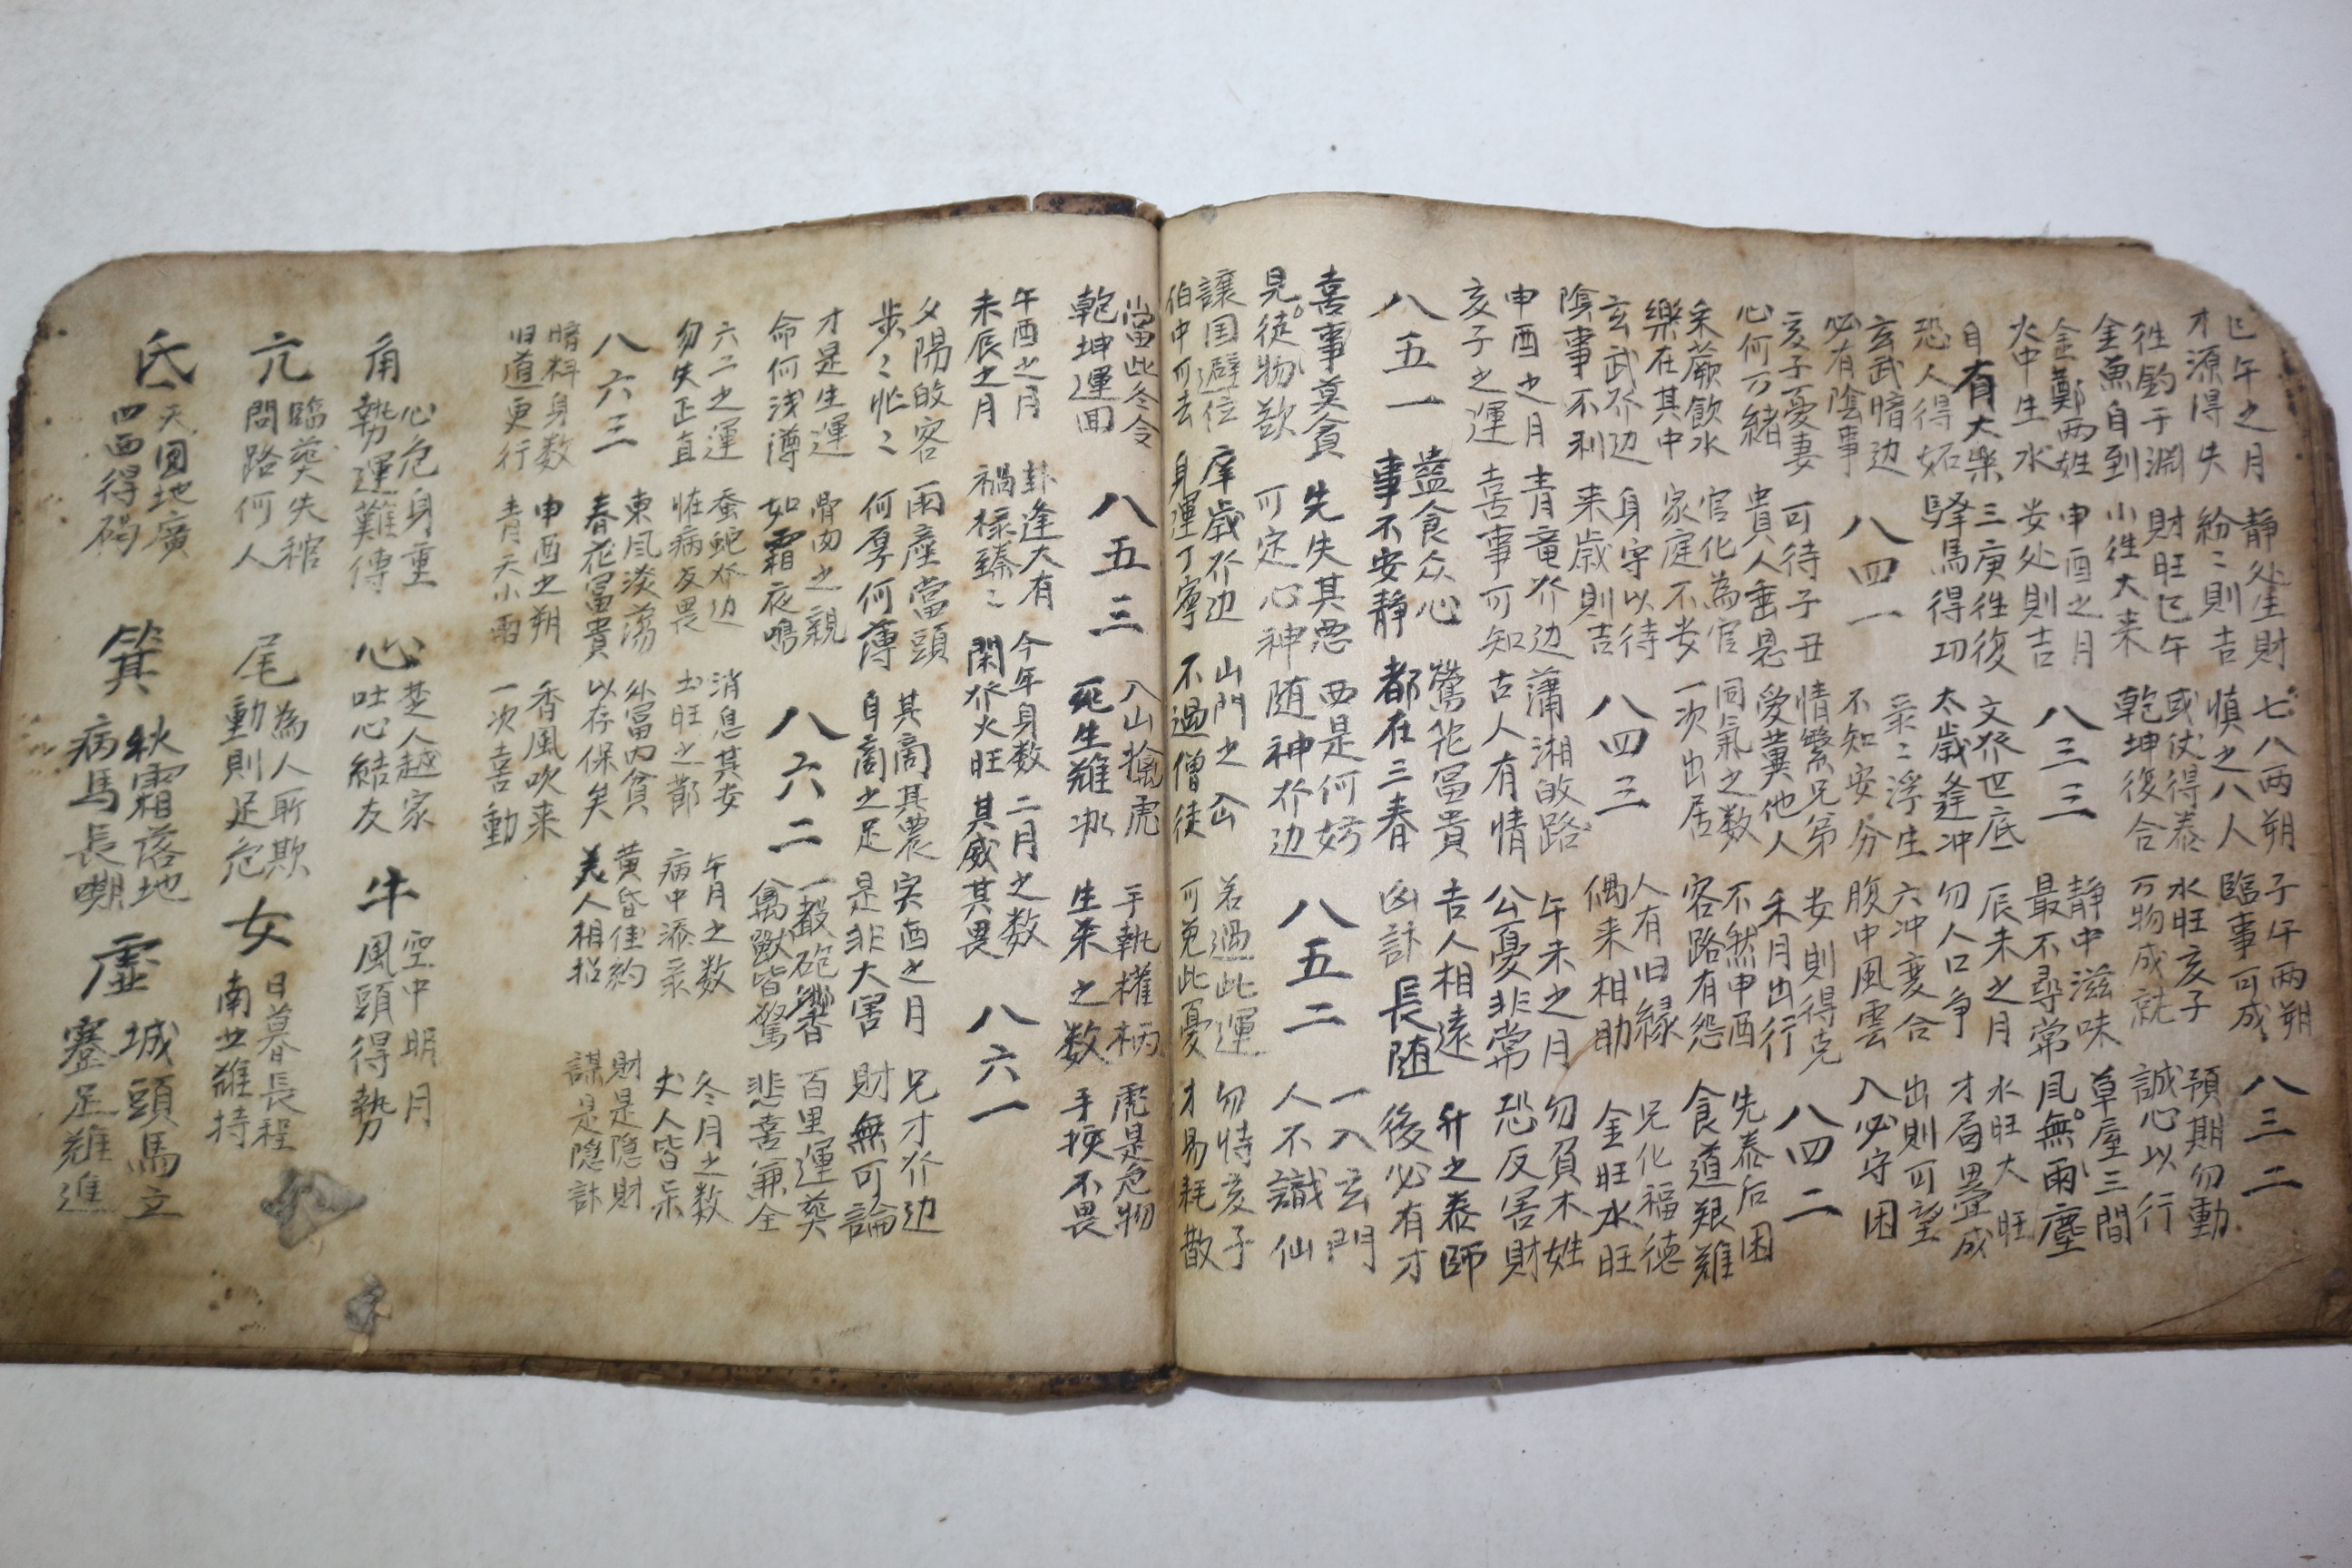 巳午之月
才源得失
静处生財
紛〻則吉
七八两朔
慎之八人
子午两朔
臨事可成
八三二
徃釣于淵
金魚自到
財旺巳午
小徃大来
或仗得泰
乾坤復合
水旺亥子
万物成就
預期勿動
誠心以行
金鄭两姓
火中生水
申酉之月
安处則吉
八三三
静中滋味
最不尋常
草屋三間
風無雨塵
自有大樂
恐人得妬
三庚徃復
驛馬得功
文世底
太歲逢冲
辰未之月
勿人口争
水旺大旺
才局畳成
玄武暗边
必有陰事
八四一
〻浮生
不知安分
六冲変合
腹中風雲
出則可望
入必守困
亥子憂妻
心何万緒
可待子丑
貴人垂恩
情繁兄弟
愛冀他人
安則得克
禾月出行
八四二
采蕨飲水
樂在其中
官化為官
家庭不安
同氣之数
一次出居
不然申酉
客路有怨
先泰后困
食道艱難
玄武边
陰事不利
身守以待
来歲則吉
八四三
人有旧縁
偶来相助
兄化福德
金旺水旺
申酉之月
亥子之運
青竜边
喜事可知
瀟湘故路
古人有情
午未之月
公憂非常
勿負木姓
恐反害財
八五一
食众心
事不安静
鶯花冨貴
都在三春
吉人相遠
凶計長随
升之泰師
後必有才
喜事莫貪
見徒物歎
先失其悪
可定心神
西是何妨
随神边
八五二
一入玄門
人不識仙
讓国避位
伯中可去
歲边
身運丁寧
山門之厄
不過僧徒
若過此運
可免此憂
勿恃亥子
才易耗散
當此冬令
乾坤運回
八五三
入山擒虎
死生難
手執權柄
生来之数
虎是危物
手挾不畏
午酉之月
未辰之月
卦逢大有
禍祿臻〻
今年身数
閑火旺
二月之数
其威其畏
八六一
夕陽故客
步〻忙〻
雨座當頭
何厚何薄
其商其農
自商之足
寅酉之月
是非大害
兄才边
財無可論
才是生運
命何浅薄
骨肉之親
如霜夜鳴
八六二
一穀砲響
禽獸皆驚
百里運奠
悲喜兼全
六二之運
勿失正直
蚕蛇边
恠病友畏
消息其安
土旺之節
午月之数
病中添
冬月之数
丈人皆呆
八六三
東風淡蕩
春花冨貴
外富内貧
以存保矣
黄昏佳約
美人相招
財是隐財
謀是隐計
暗科身数
旧道更行
申酉之朔
青天小雨
香風吹来
一次喜動
角
心危身重
勢運難傳
心
楚人越家
吐心結友
牛
空中明月
風頭得勢
亢
臨奠失棺
問路何人
尾
為人所欺
動則足危
女
日暮長程
南世難持
氐
天圓地廣
四西得
箕
秋霜落地
病馬長嘲
虛
城頭馬立
蹇足難進